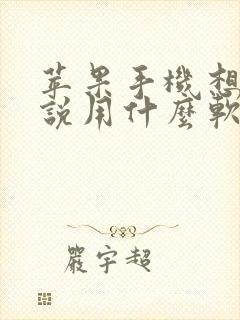 苹果手機想
說用什麼軟
嚴宇超